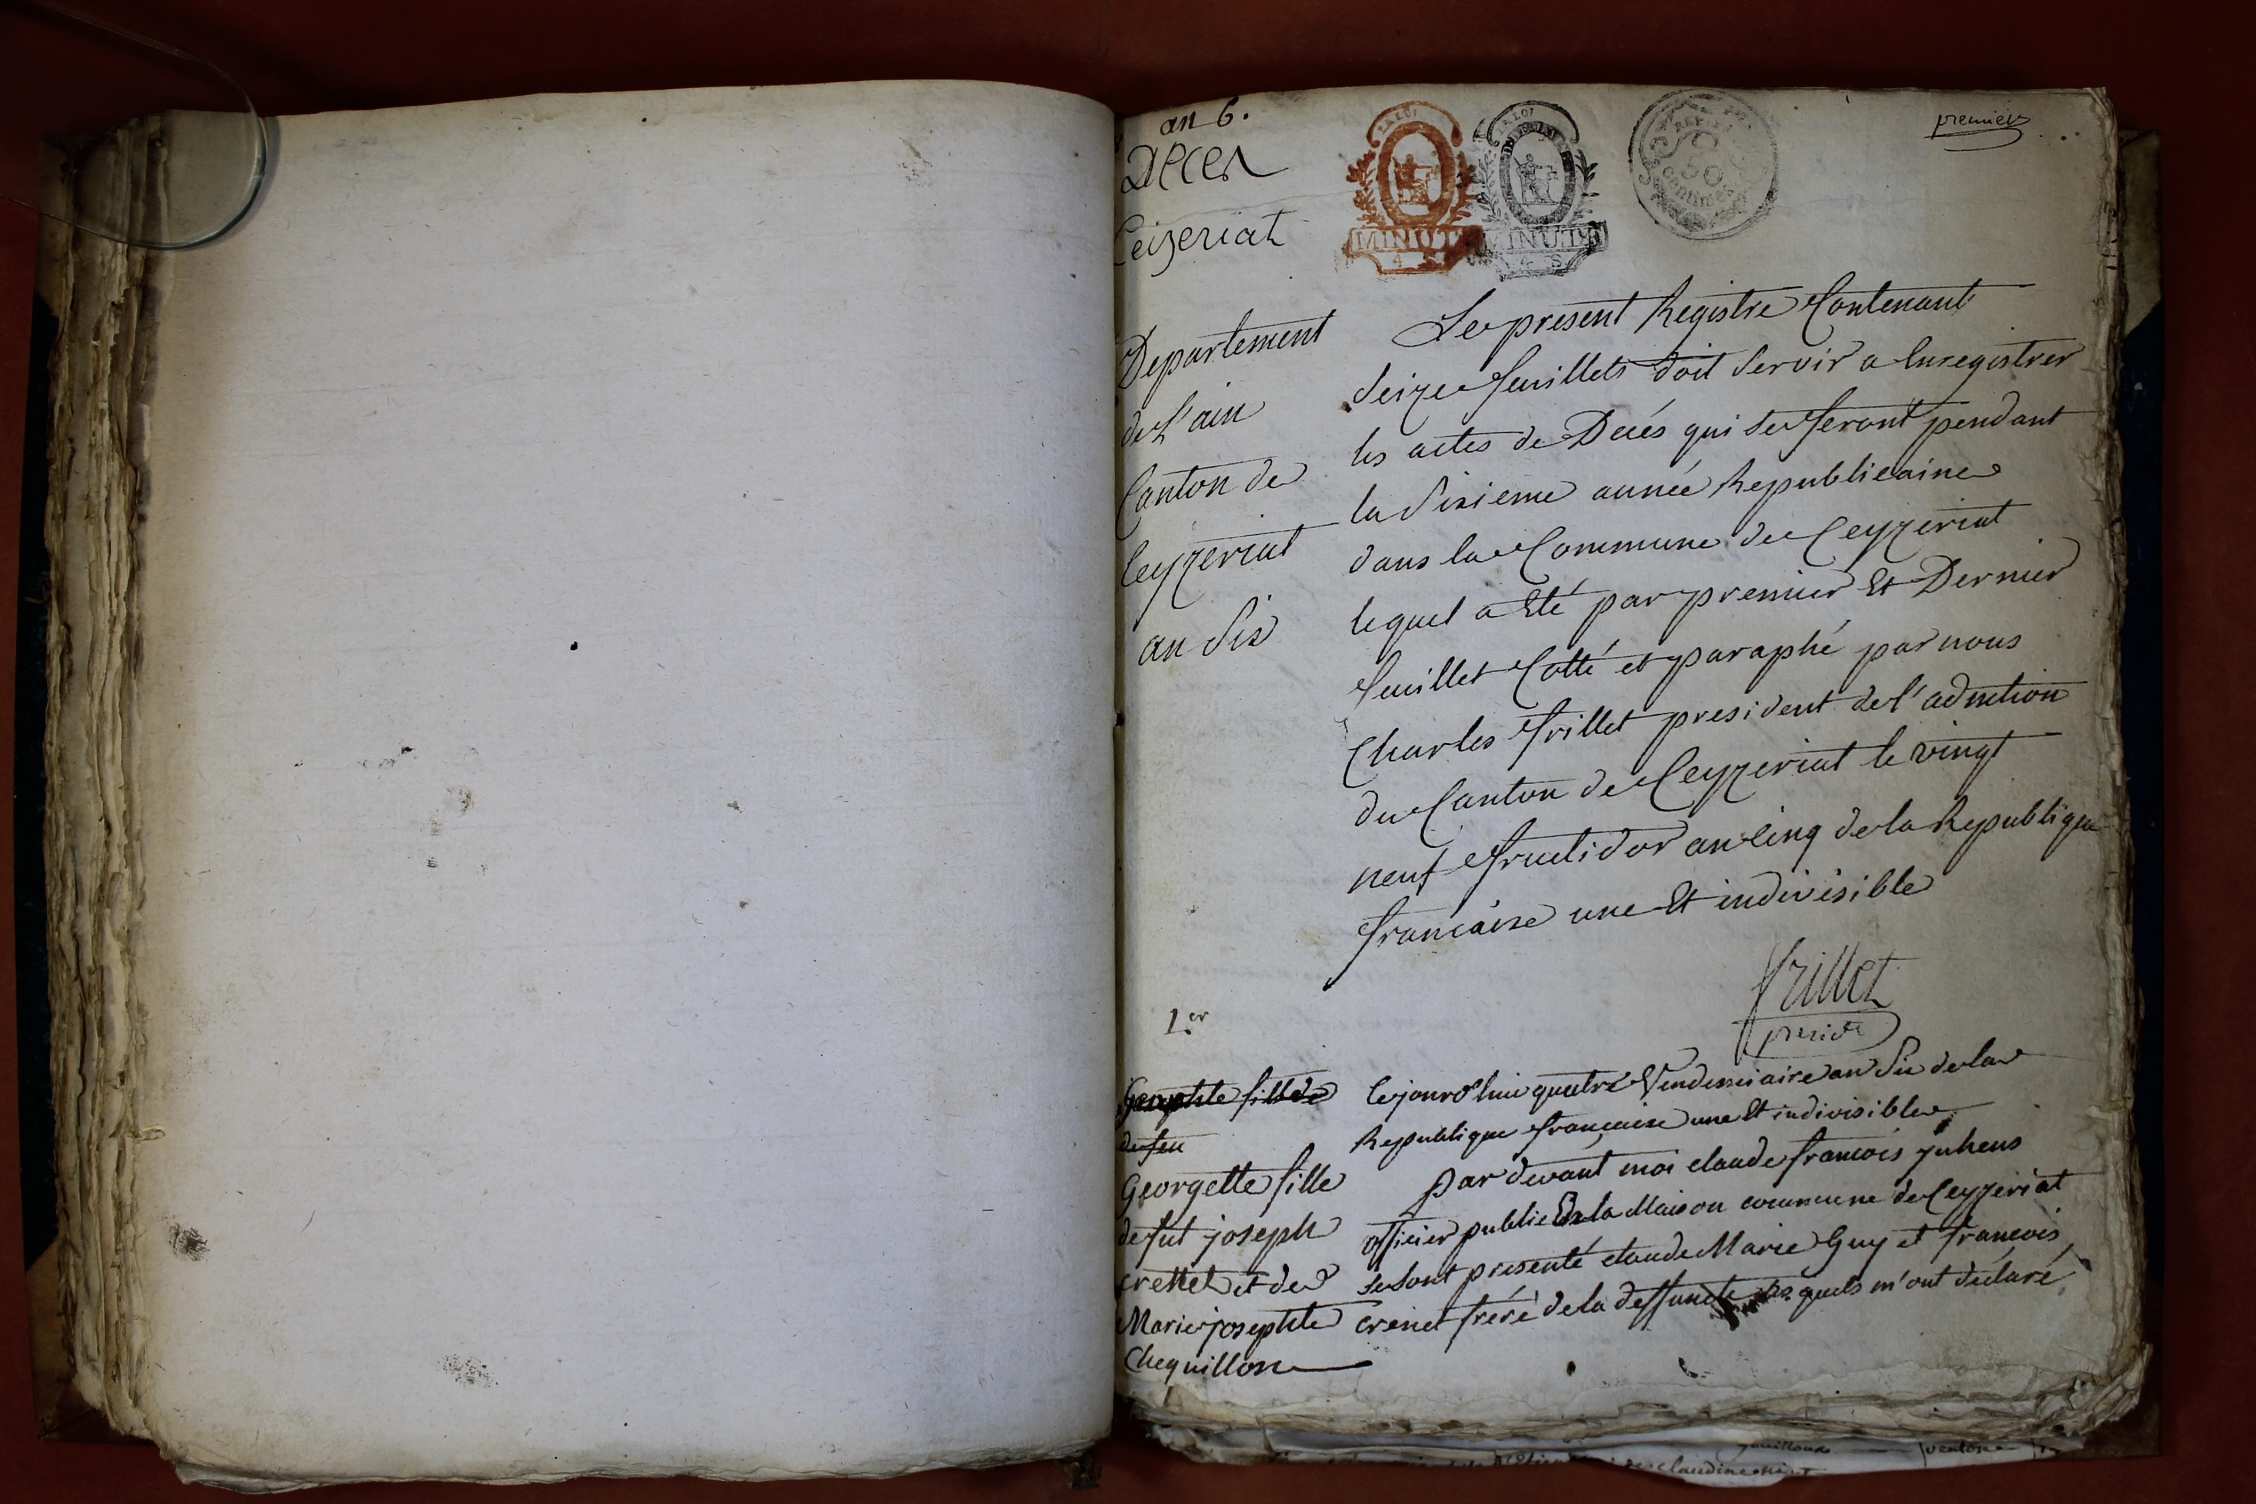 an 6.
premier
Décès
Ceizeriat
LA LOI
MINUTE
4 S
LA LOI
MINUTE
4 S
50
centimes
Departement
de L'ain
Canton de
Ceyzeriat
an Six
Le present Registre Contenant
Seize feuillets doit Servir a Enregistrer
les actes de Décés qui se feront pendant
la Sixieme année Republicaine
dans la Commune de Ceyzeriat
lequel a Eté par premier Et Dernier
feuillet Cotté et paraphé par nous
Charles frillet president de l'admtion
du Canton de Ceyzeriat le vingt
neuf fructidor an Cinq de la Republique
francaise une Et indivisible
frillet
presidt
1.er
fille de
de feu
Georgette fille
de fut joseph
crettet et de
Marie josephte
Chequillon
Cejourd'hui quatre Vendemiaire an Six de la
Republique francaise une Et indivisible
Par devant moi claude francois juhens
officier public En la Maison commune de Ceyzeriat
se sont présenté claude Marie Guy et francois
crenet frére de la deffuncte lesquels m'ont déclaré